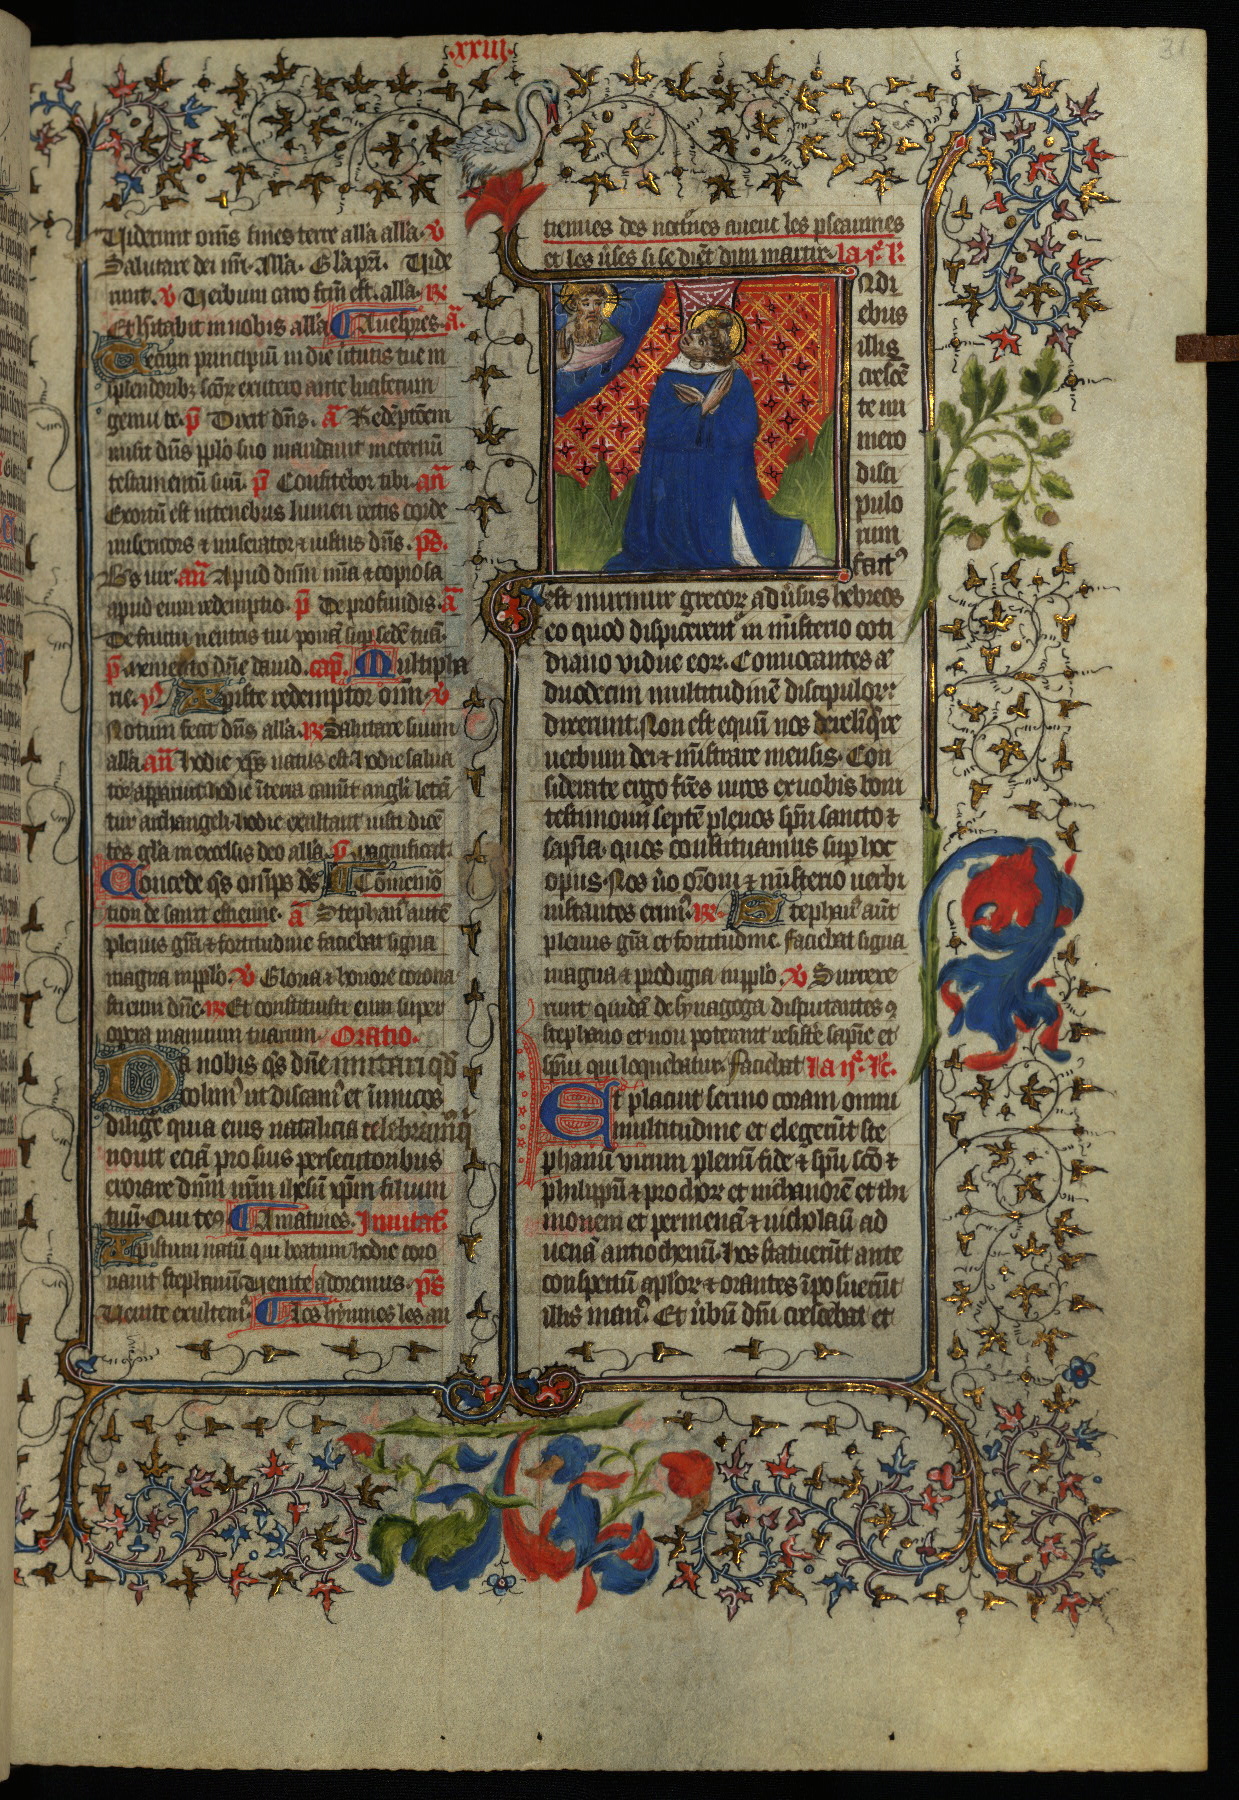 .xxiij.
31
Viderunt om̄s fines terre alla alla. v
Salutare dei nr̄i. Alla. Gl̄a pr̄i. Vide
runt. v Verbum caro fcm̄ est. alla. R
Et hītabit in nobis alla Auespres. a.
Tecum principiū in die uirtutis tue in
splendoribꝫ scōꝝ ex utero ante luciferum
genui te. p̄ Dixit dn̄s. a Redēptōem
misit dn̄s pplo suo mandauit in eternū
testamentū suū. p̄ Confitebor tibi. an̄
Exortū est in tenebris lumen rectis corde
misericors ⁊ miserator ⁊ iustus dn̄s. ps̄.
Bs̄ uir. an̄ Apud dn̄m mīa ⁊ copiosa
apud eum redemptio. p̄ De profundis. a
De fructu uentris tui ponā sup sedē tuā.
p̄ memento dn̄e dauid. cap̄. Multipha
rie. yͫ Xpiste redemptor oīm. v
Notum fecit dn̄s alla. R Salutare suum
alla an̄ hodie xp̄s natus est. hodie salua
tor apparuit hodie ī terra canūt angli letā
tur archangeli. hodie exultant iusti dicē
tes gl̄a in excelsis deo alla. p̄ magnificat.
Concede qs̄ om̄ips ds̄ Cōmemo
tion de saint estienne. a Stephan᾿ autē
plenus gr̄a ⁊ fortitudine faciebat signa
magna in pplo. v Gloria ⁊ honore corona
sti eum dn̄e. R Et constituisti eum super
opera manuum tuarum. Oratio.
Da nobis qs̄ dn̄e imitari qd̄
colim᾿ ut discam᾿ et inimicos
dilige quia eius natalicia celebram᾿ q̄
nouit eciā pro suis persecutoribus
exorare dn̄m nr̄m ihesū xp̄m filium
tuū. Qui tecꝯ Amatines. Inuitat̄.
Xpistum natū qui beatum hodie coro
nauit stephanū uenite adoremus. ps̄
Venite exultem᾿ Les hymnes les an
tiennes des noct̄nes auent les pseaumes
et les v̄ses si se diēt dun martir. la .jͤ. R̄.
N di
ebus
illis
crescē
te nu
mero
disci
pulo
rum
fact᾿
est murmur grecoꝝ adūsus hebreos
eo quod dispicerent᾿ in misterio coti
diano vidue eoꝝ. Conuocantes aͭ
duodecim multitudinē discipuloꝝ:
dixerunt. Non est equū nos derelīq̄re
uerbum dei ⁊ mīstrare mensis. Con
siderate ergo fr̄es uiros ex uobis boni
testimonii septē plenos spū sancto ⁊
sapīa. quos constituamus sup hoc
opus. Nos ūo orōni ⁊ mīsterio uerbi
instantes erim᾿. R. Stephan᾿ aūt
plenus gr̄a et fortitudine. faciebat signa
magna ⁊ prodigia in pplo. v Surrexe
runt quidā de synagoga disputantes ꝯ
stephano et non poterant resistē sapīe et
spūi qui loquebatur. faciebat la .ijͤ. R̄.
Et placuit sermo coram omni
multitudine et elegerūt ste
phanū virum plenū fide ⁊ spū scō ⁊
philippū ⁊ prochorē et nichanorē et thi
monem et permenā ⁊ nicholaū ad
uenā antiochenū. hos statuerūt ante
conspectū aplōꝝ ⁊ orantes īposuerūt
illis man᾿. Et ūbū dn̄i crescebat et